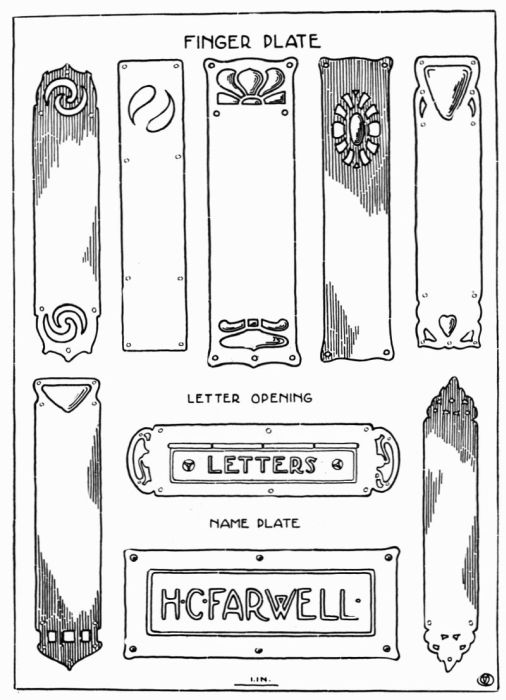 FINGER PLATE
LETTER OPENING
LETTERS
NAME PLATE
H·C·FARWELL·
1.IN.